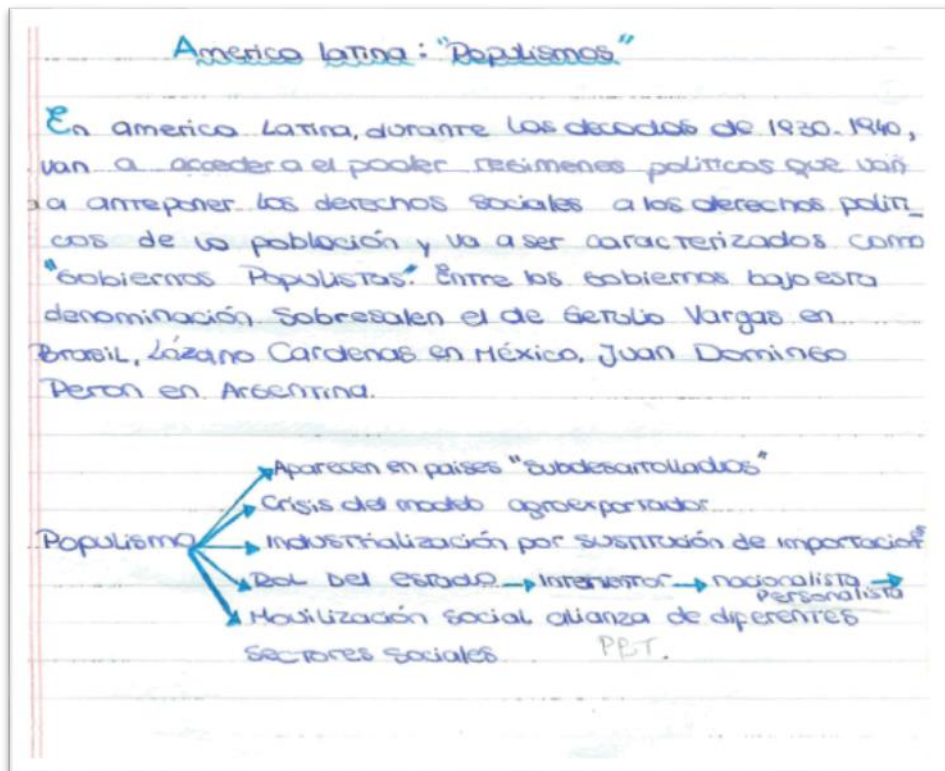 America Latina: "Populismos"
En america Latina, durante las decadas de 1930-1940,
van a acceder a el poder regimenes politicos que van
a anteponer los derechos sociales a los derechos politi_
cos de la población y va a ser caracterizados como
"Gobiernos Populistas". Entre los gobiernos bajo esta
denominación sobresalen el de Getulio Vargas en
Brasil, Lázaro Cardenas en México, Juan Domingo
Peron en Argentina.
Aparecen en paises "subdesarrollados"
Crisis del modelo agroexportador
Populismo → Industrialización por sustitución de importacion
es
Rol Del estado → interventor → nacionalista →
personalista
Movilización social alianza de diferentes
sectores sociales.